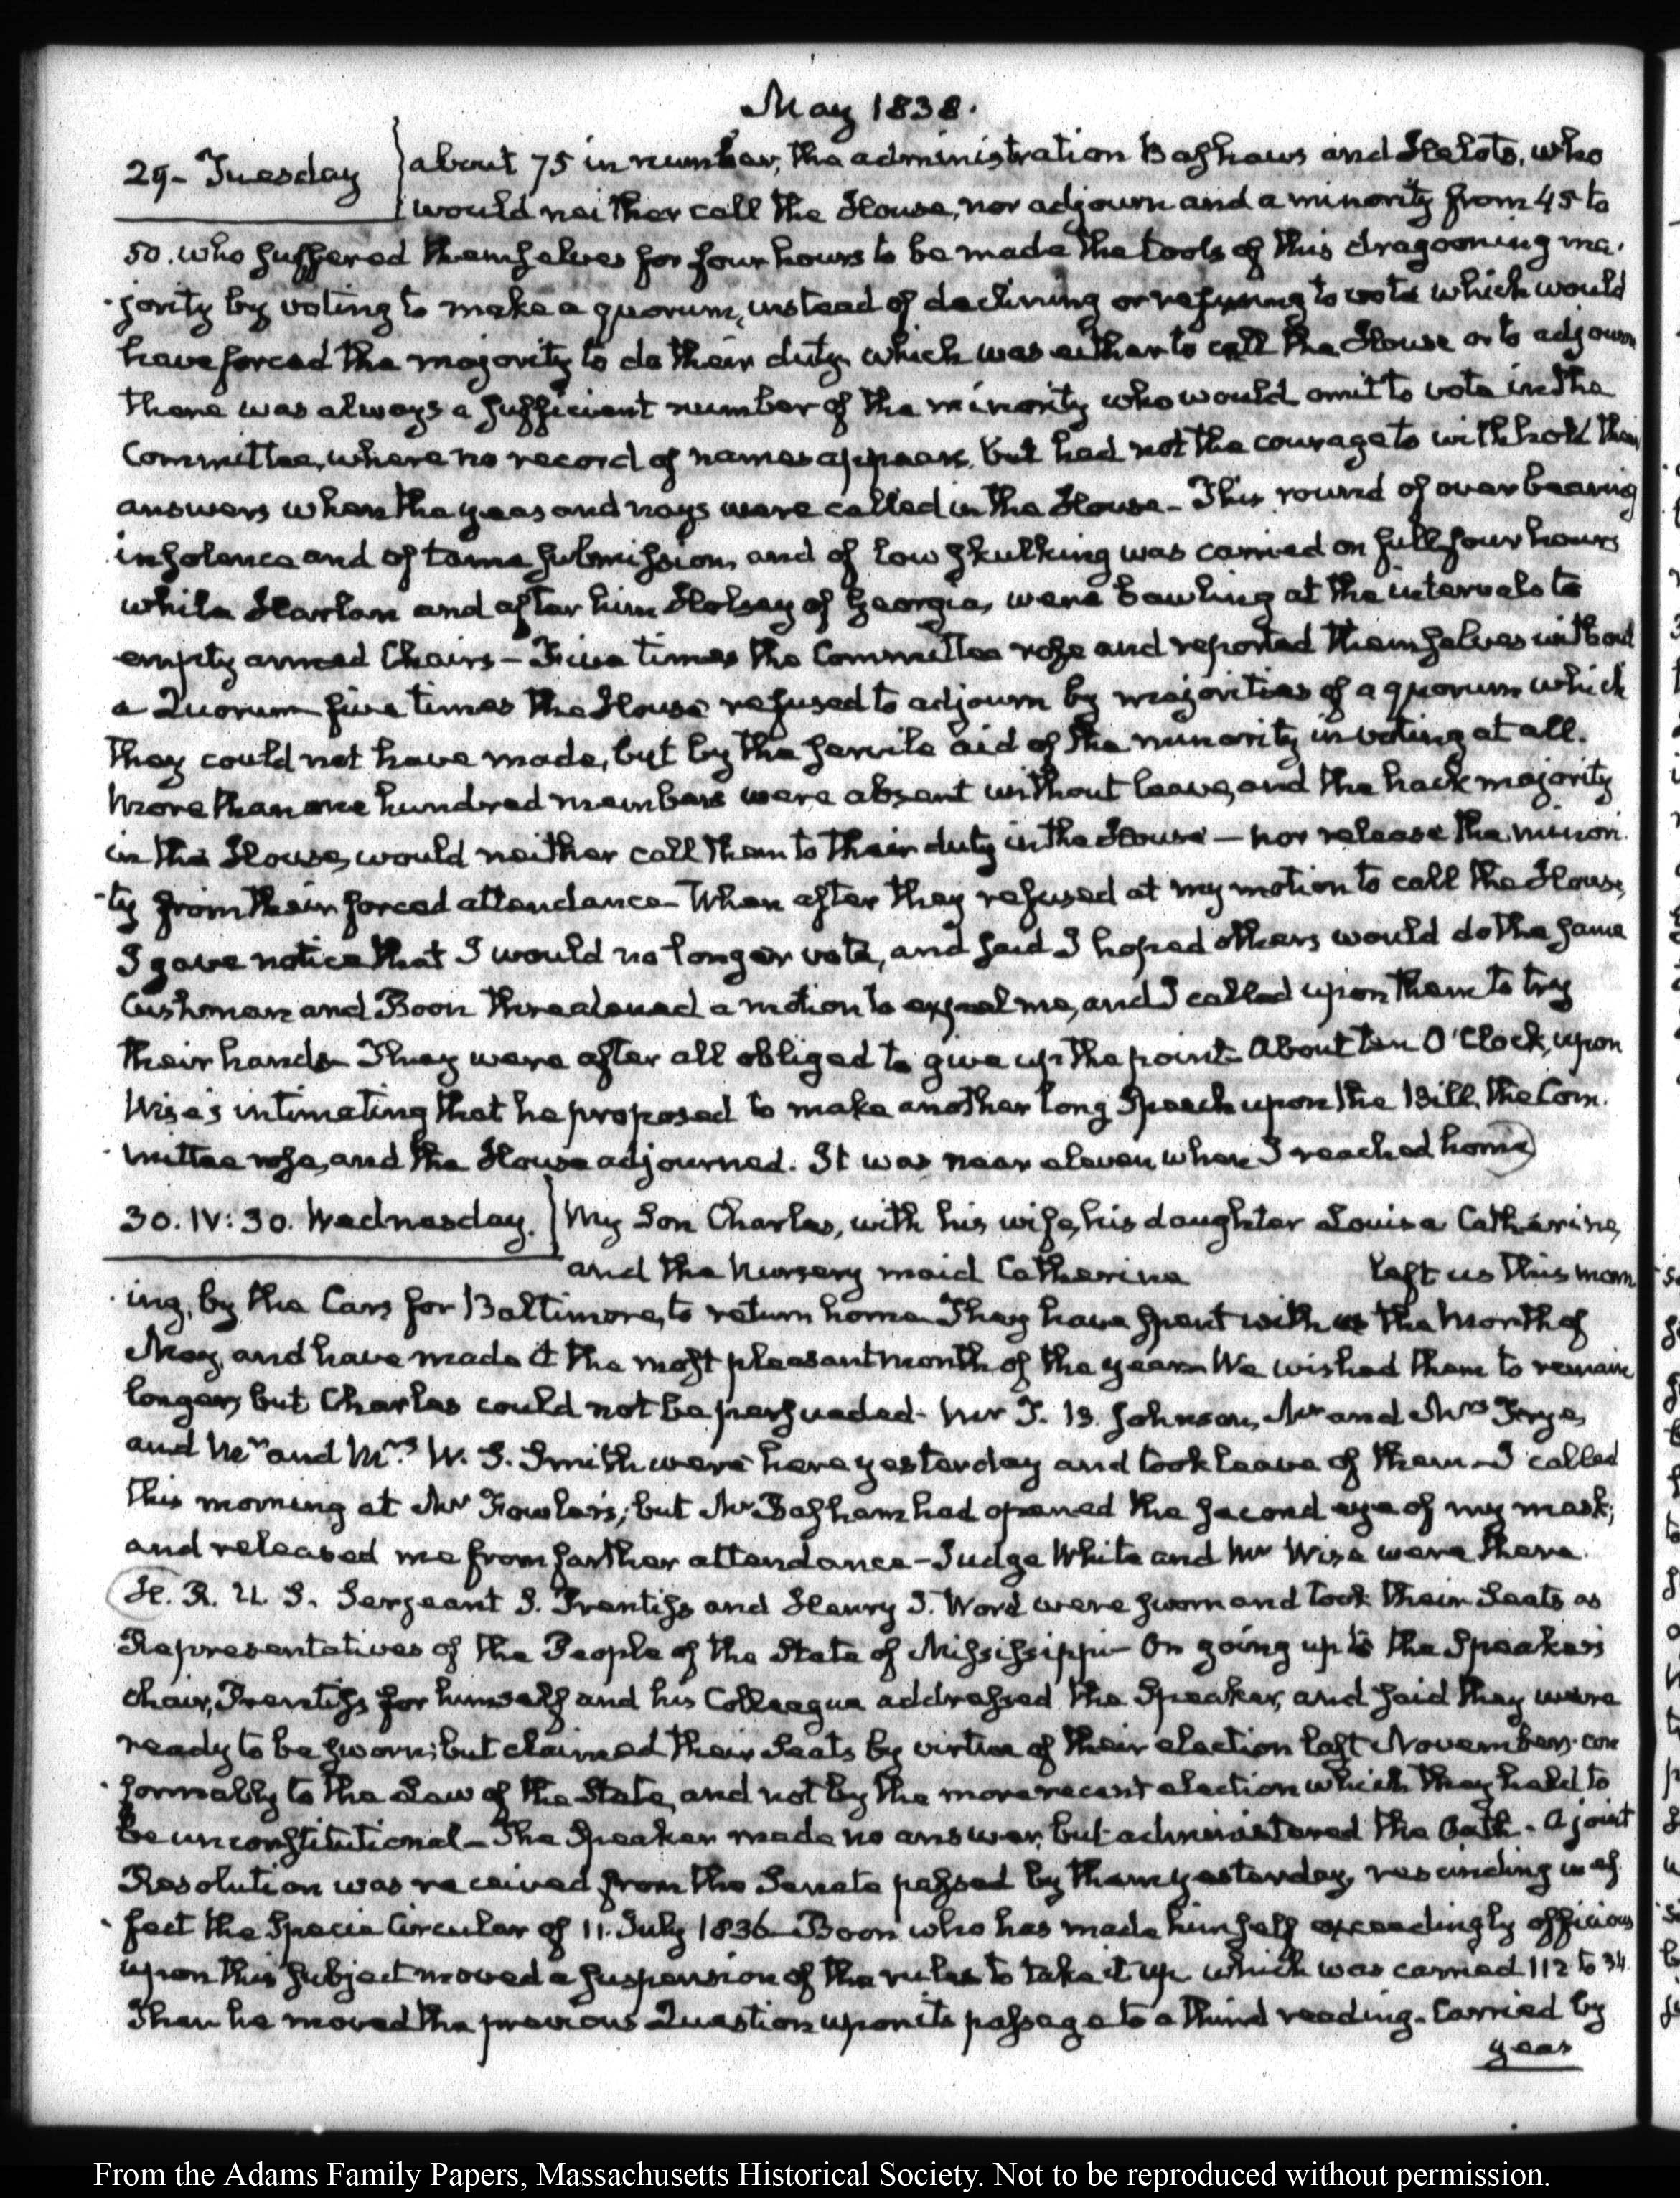 May 1838.
29- Tuesday
about 75 in number, the administration Bashaws and Helots, who
would neither call the House, nor adjourn and a minority from 45 to
50. who suffered themselves for four hours to be made the tools of this dragooning ma-
-jority by voting to make a quorum, instead of declining or refusing to vote which would
have forced the majority to do their duty which was either to call the House or to adjourn
there was always a sufficient number of the minority who would omit to vote in the
Committee, where no record of names appears, but had not the courage to withhold their
answers when the yeas and nays were called in the House- This round of overbearing
insolence and of tame submission, and of low skulking was carried on full four hours
while Harlan and after him Holsey of Georgia, were bawling at the intervals to
empty armed Chairs- Five times the Committee rose and reported themselves without
a Quorum- five times the House refused to adjourn by majorities of a quorum which
they could not have made, but by the servile aid of the minority in voting at all.
More than one hundred members were absent without leave, and the hack majority
in the House, would neither call them to their duty in the House- nor release the minori-
-ty from their forced attendance- When after they refused at my motion to call the House,
I gave notice that I would no longer vote, and said I hoped others would do the same
Cushman and Boon threatened a motion to expel me, and I called upon them to try
their hands- They were after all obliged to give up the point- About ten O'Clock, upon
Wise's intimating that he proposed to make another long Speech upon the Bill, the Com-
-mittee rose, and the House adjourned. It was near eleven when I reached home
30. IV:30. Wednesday.
My Son Charles, with his wife, his daughter Louisa Catherine,
and the Nursery maid Catherine left us this morn-
-ing, by the Cars for Baltimore, to return home- They have spent with us the Month of
May, and have made it the most pleasant month of the year- We wished them to remain
longer, but Charles could not be persuaded- Mr T. B. Johnson, Mr and Mrs Frye,
and Mr and Mrs W. S. Smith were here yesterday and took leave of them- I called
this morning at Mr Fowler's; but Mr Basham had opened the second eye of my mask;
and released me from further attendance- Judge White and Mr Wise were there.
H. R. U. S. Sergeant S. Prentiss and Henry T. Word were sworn and took their Seats as
Representatives of the People of the State of Mississippi- On going up to the Speaker's
chair, Prentiss for himself and his Colleague addressed the Speaker, and said they were
ready to be sworn; but claimed their Seats by virtue of their election last November, con-
-formably to the Law of the State, and not by the more recent election which they held to
be unconstitutional- The Speaker made no answer, but administered the Oath- A joint
Resolution was received from the Senate passed by them yesterday, rescinding in ef-
-fect the Specie Circular of 11. July 1836- Boon who has made himself exceedingly officious
upon this subject moved a suspension of the rules to take it up which was carried 112 to 34.
Then he moved the previous Question upon its passage to a third reading- Carried by
yeas
From the Adams Family Papers, Massachusetts Historical Society. Not to be reproduced without permission.